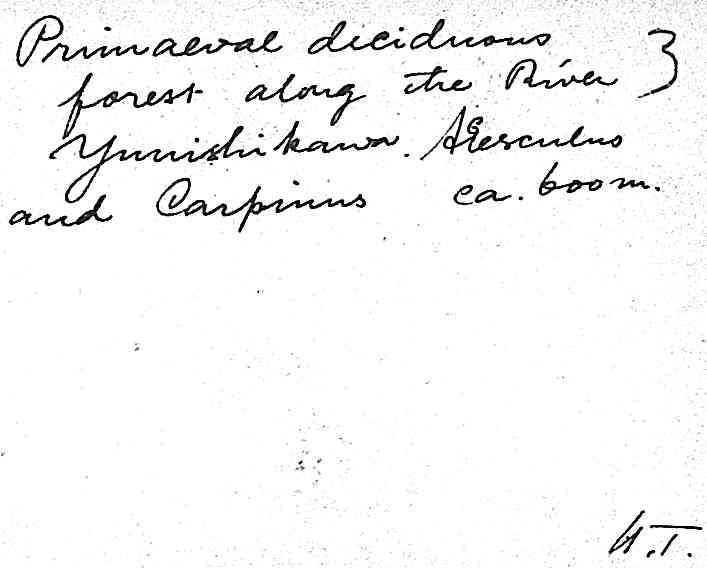 Primaeval deciduous }
forest along the River
Yunishikawa. Aesculus
and Carpinus ca. 600 m.
H.T.